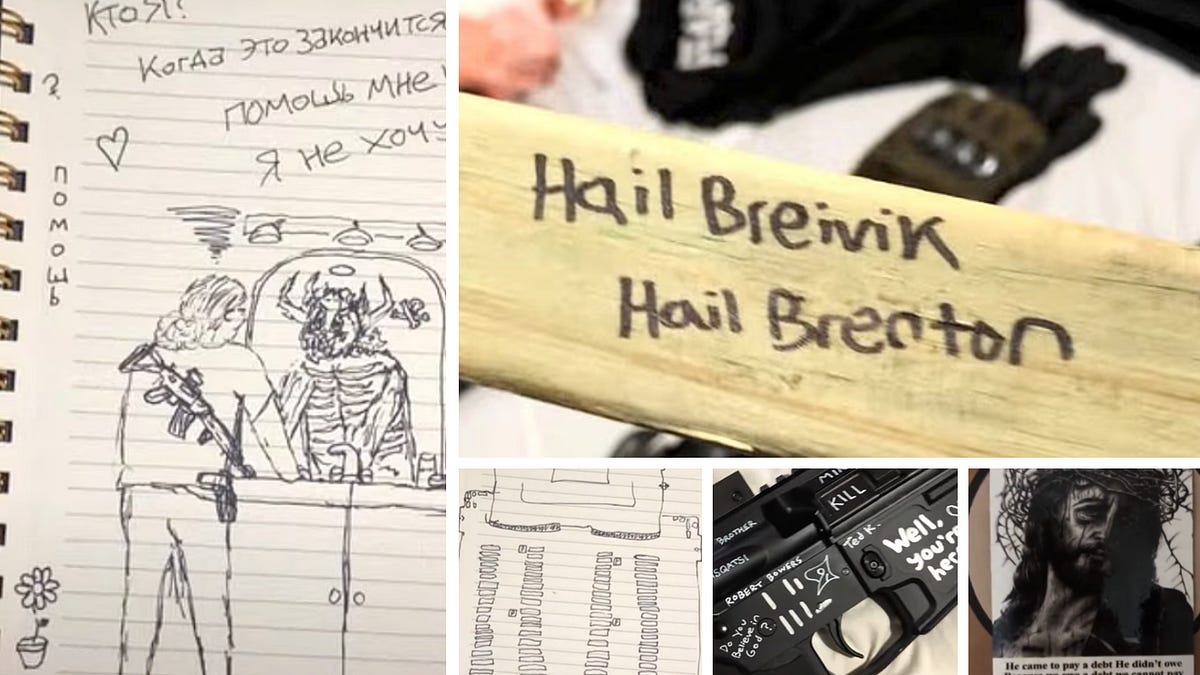 Кто я?
Когда это закончится
?
помошь мне
я не хочу
помошь
Hail Breivik
Hail Brenton
BROTHER
KILL
Ted K.
Well,
you're
here
ROBERT BOWERS
Do You
Believe in
God?
He came to pay a debt He didn't owe